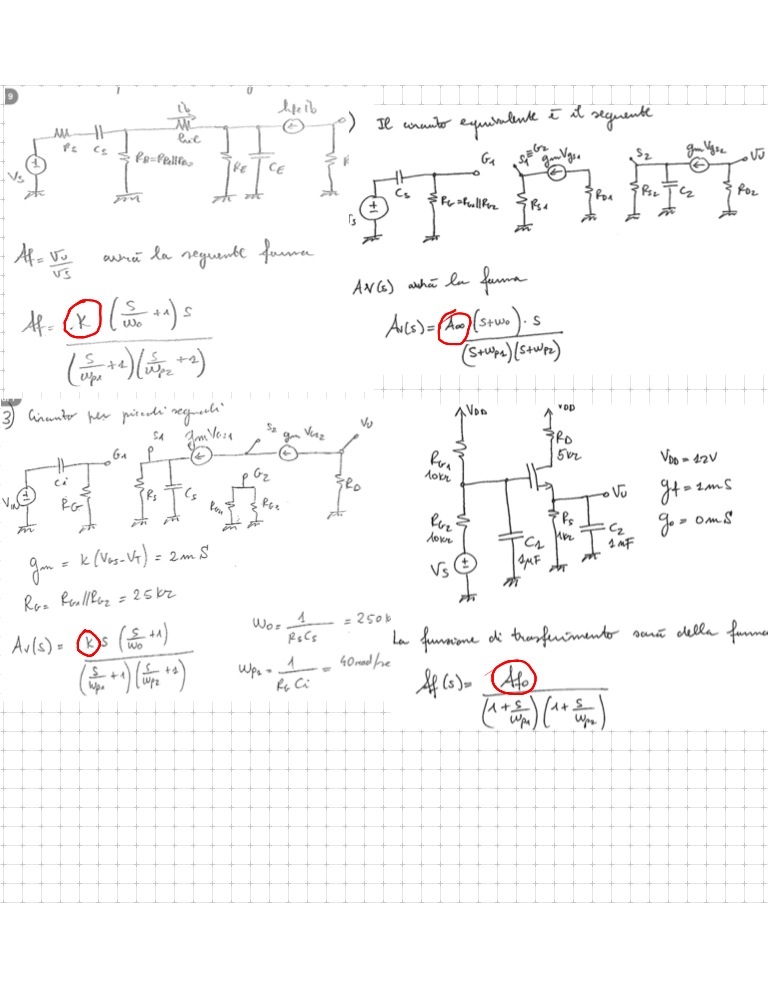 9
ib
hfe ib
hie
RS
CS
RB=RB1//RB2
RE
CE
VS
Af = Vu/VS avrà la seguente forma
Af = K (S/ω0 + 1) S / (S/ωp1 + 1)(S/ωp2 + 1)
) Il circuito equivalente è il seguente
G1
S1≡G2
gmVgs1
S2
gmVgs2
Vu
CS
RG=RG1//RG2
RS1
RD1
RS2
C2
RD2
AV(s) avrà la forma
AV(s) = A∞ (S+ω0)·S / (S+ωp1)(S+ωp2)
3) Circuito per piccoli segnali
G1
S1
gmVGS1
S2
gmVGS2
Vu
Ci
VIN
RG
RS
CS
G2
RG2
RD
gm = K(VGS-VT) = 2mS
RG = RG1//RG2 = 25kΩ
AV(s) = K S (S/ω0 + 1) / (S/ωp1 + 1)(S/ωp2 + 1)
ω0 = 1/RSCS = 250
ωp1 = 1/RGCi = 40 rad/se
VDD
VDD
RG1
10kΩ
RD
5kΩ
RG2
10kΩ
Vu
RS
1kΩ
C1
1µF
C2
VS
VDD = 12V
gf = 1mS
g0 = 0mS
La funzione di trasferimento sarà della forma
Af(s) = Af0 / (1 + S/ωp1)(1 + S/ωp2)